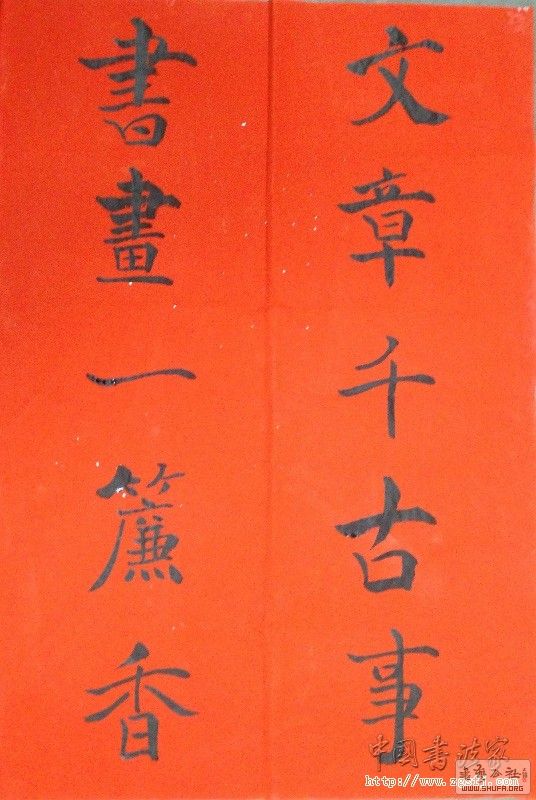 文章千古事
書畫一簾香
中國書法家
http://www.zgsfj.com
WWW.SHUFA.ORG